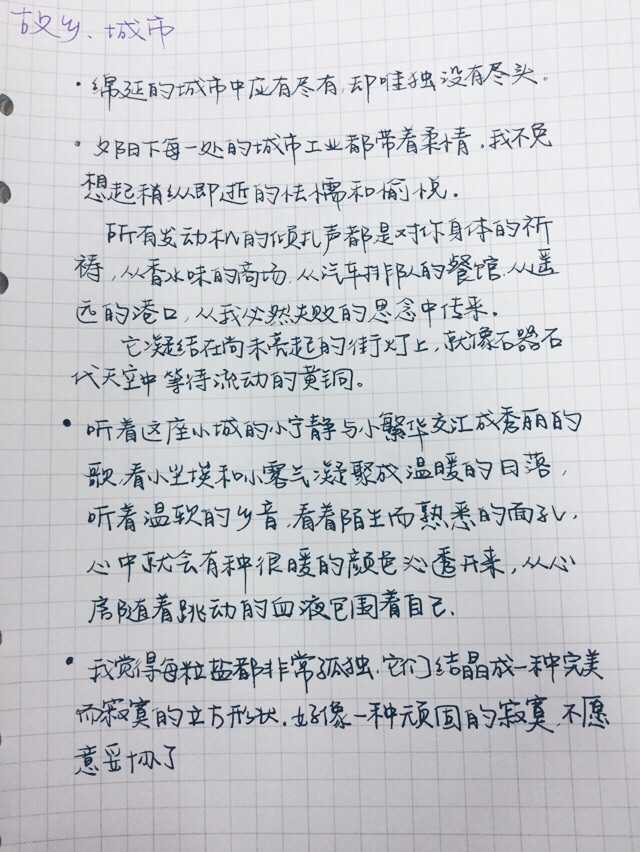 故乡、城市
·绵延的城市中应有尽有,却唯独没有尽头。
·夕阳下每一处的城市工业都带着柔情.我不免
想起稍纵即逝的怯懦和愉悦.
所有发动机的倾轧声都是对你身体的祈
祷,从香水味的商场.从汽车排队的餐馆.从遥
远的港口,从我必然失败的思念中传来。
它凝结在尚未亮起的街灯上,就像石器石
代天空中等待流动的黄铜。
·听着这座小城的小宁静与小繁华交汇成秀丽的
歌,看小尘埃和小雾气凝聚成温暖的日落,
听着温软的乡音,看着陌生而熟悉的面孔,
心中就会有种很暖的颜色沁透开来,从心
房随着跳动的血液包围着自己.
·我觉得每粒盐都非常孤独.它们结晶成一种完美
而寂寞的立方形状.好像一种顽固的寂寞,不愿
意妥协了